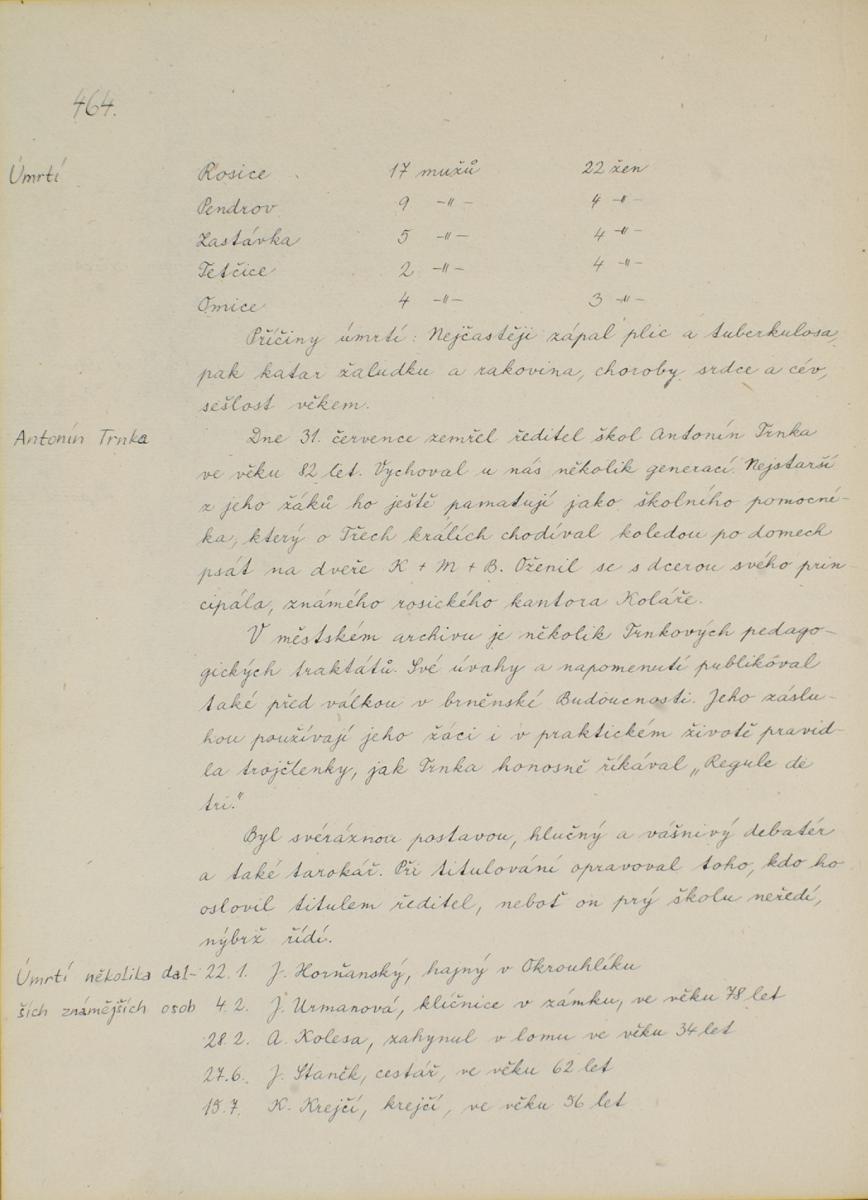 464.
Úmrtí Rosice 17 mužů 22 žen
Pendrov 9 -"- 4 -"-
Zastávka 5 -"- 4 -"-
Tetčice 2 -"- 4 -"-
Omice 4 -"- 3 -"-
Příčiny úmrtí: Nejčastěji zápal plic a tuberkulosa,
pak katar žaludku a rakovina, choroby srdce a cév,
sešlost věkem.
Antonín Trnka Dne 31. července zemřel ředitel škol Antonín Trnka
ve věku 82 let. Vychoval u nás několik generací. Nejstarší
z jeho žáků ho ještě pamatují jako školního pomocné-
ka, který o Třech králích chodíval koledou po domech
psát na dveře K + M + B. Oženil se s dcerou svého prin-
cipála, známého rosického kantora Koláře.
V městském archivu je několik Trnkových pedago-
gických traktátů. Své úvahy a napomenutí publikóval
také před válkou v brněnské Budoucnosti. Jeho záslu-
hou používají jeho žáci i v praktickém životě pravid-
la trojčlenky, jak Trnka honosně říkával „Regule de
tri."
Byl svéráznou postavou, hlučný a vášnivý debatér
a také tarokář. Při titulování opravoval toho, kdo ho
oslovil titulem ředitel, neboť on prý školu neředí,
nýbrž řídí.
Úmrtí několika dal- 22. 1. J. Horňanský, hajný v Okrouhlíku
ších známějších osob 4. 2. J. Urmanová, klíčnice v zámku, ve věku 78 let
28. 2. A. Kolesa, zahynul v lomu ve věku 34 let
27. 6. J. Staněk, cestář, ve věku 62 let
15. 7. K. Krejčí, krejčí, ve věku 56 let